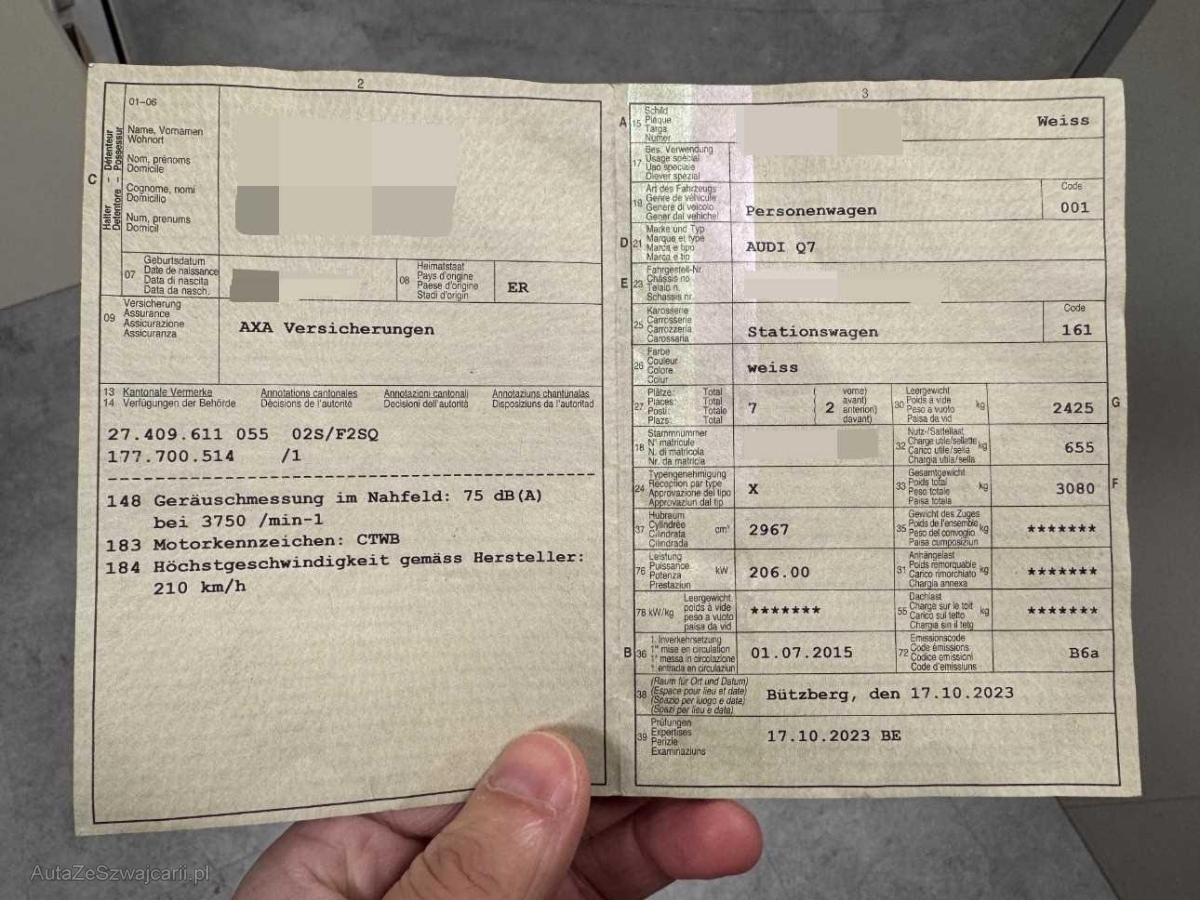 2
01-06
Halter - Détenteur
Detentore - Possessur
C
Name, Vornamen
Wohnort
Nom, prénoms
Domicile
Cognome, nomi
Domicilio
Num, prenums
Domicil
07
Geburtsdatum
Date de naissance
Data di nascita
Data da nasch.
08
Heimatstaat
Pays d'origine
Paese d'origine
Stadi d'origin
ER
09
Versicherung
Assurance
Assicurazione
Assicuranza
AXA Versicherungen
13 Kantonale Vermerke Annotations cantonales Annotazioni cantonali Annotaziuns chantunalas
14 Verfügungen der Behörde Décisions de l'autorité Decisioni dell'autorità Disposiziuns da l'autoritad
27.409.611 055 02S/F2SQ
177.700.514 /1
148 Geräuschmessung im Nahfeld: 75 dB(A)
bei 3750 /min-1
183 Motorkennzeichen: CTWB
184 Höchstgeschwindigkeit gemäss Hersteller:
210 km/h
3
A 15
Schild
Plaque
Targa
Numer
Weiss
17
Bes. Verwendung
Usage spécial
Uso speciale
Diever spezial
19
Art des Fahrzeugs
Genre de véhicule
Genere di veicolo
Gener dal vehichel
Personenwagen
Code
001
D 21
Marke und Typ
Marque et type
Marca e tipo
Marca e tip
AUDI Q7
E 23
Fahrgestell-Nr.
Châssis no
Telaio n.
Schassis nr.
25
Karosserie
Carrosserie
Carrozzeria
Carossaria
Stationswagen
Code
161
26
Farbe
Couleur
Colore
Colur
weiss
27
Plätze: Total
Places: Total
Posti: Totale
Plazs: Total
7
2
vorne)
avant)
anteriori)
davant)
30
Leergewicht
Poids à vide
Peso a vuoto
Paisa da vid
kg
2425
G
18
Stammnummer
N° matricule
N. di matricola
Nr. da matricla
32
Nutz-/Sattellast
Charge utile/sellette
Carico utile/sella
Chargia utila/sella
kg
655
24
Typengenehmigung
Réception par type
Approvazione del tipo
Approvaziun dal tip
X
33
Gesamtgewicht
Poids total
Peso totale
Paisa totala
kg
3080
F
37
Hubraum
Cylindrée
Cilindrata
Cilindrada
cm³
2967
35
Gewicht des Zuges
Poids de l'ensemble
Peso del convoglio
Paisa cumposiziun
kg
*******
76
Leistung
Puissance
Potenza
Prestaziun
kW
206.00
31
Anhängelast
Poids remorquable
Carico rimorchiato
Chargia annexa
kg
*******
78 kW/kg
Leergewicht
poids à vide
peso a vuoto
paisa da vid
*******
55
Dachlast
Charge sur le toit
Carico sul tetto
Chargia sin il tetg
kg
*******
B 36
1. Inverkehrsetzung
1re mise en circulation
1a messa in circolazione
1. entrada en circulaziun
01.07.2015
72
Emissionscode
Code émissions
Codice emissioni
Code d'emissiuns
B6a
38
(Raum für Ort und Datum)
(Espace pour lieu et date)
(Spazio per luogo e data)
(Spazi per lieu e data)
Bützberg, den 17.10.2023
39
Prüfungen
Expertises
Perizie
Examinaziuns
17.10.2023 BE
AutaZeSzwajcarii.pl